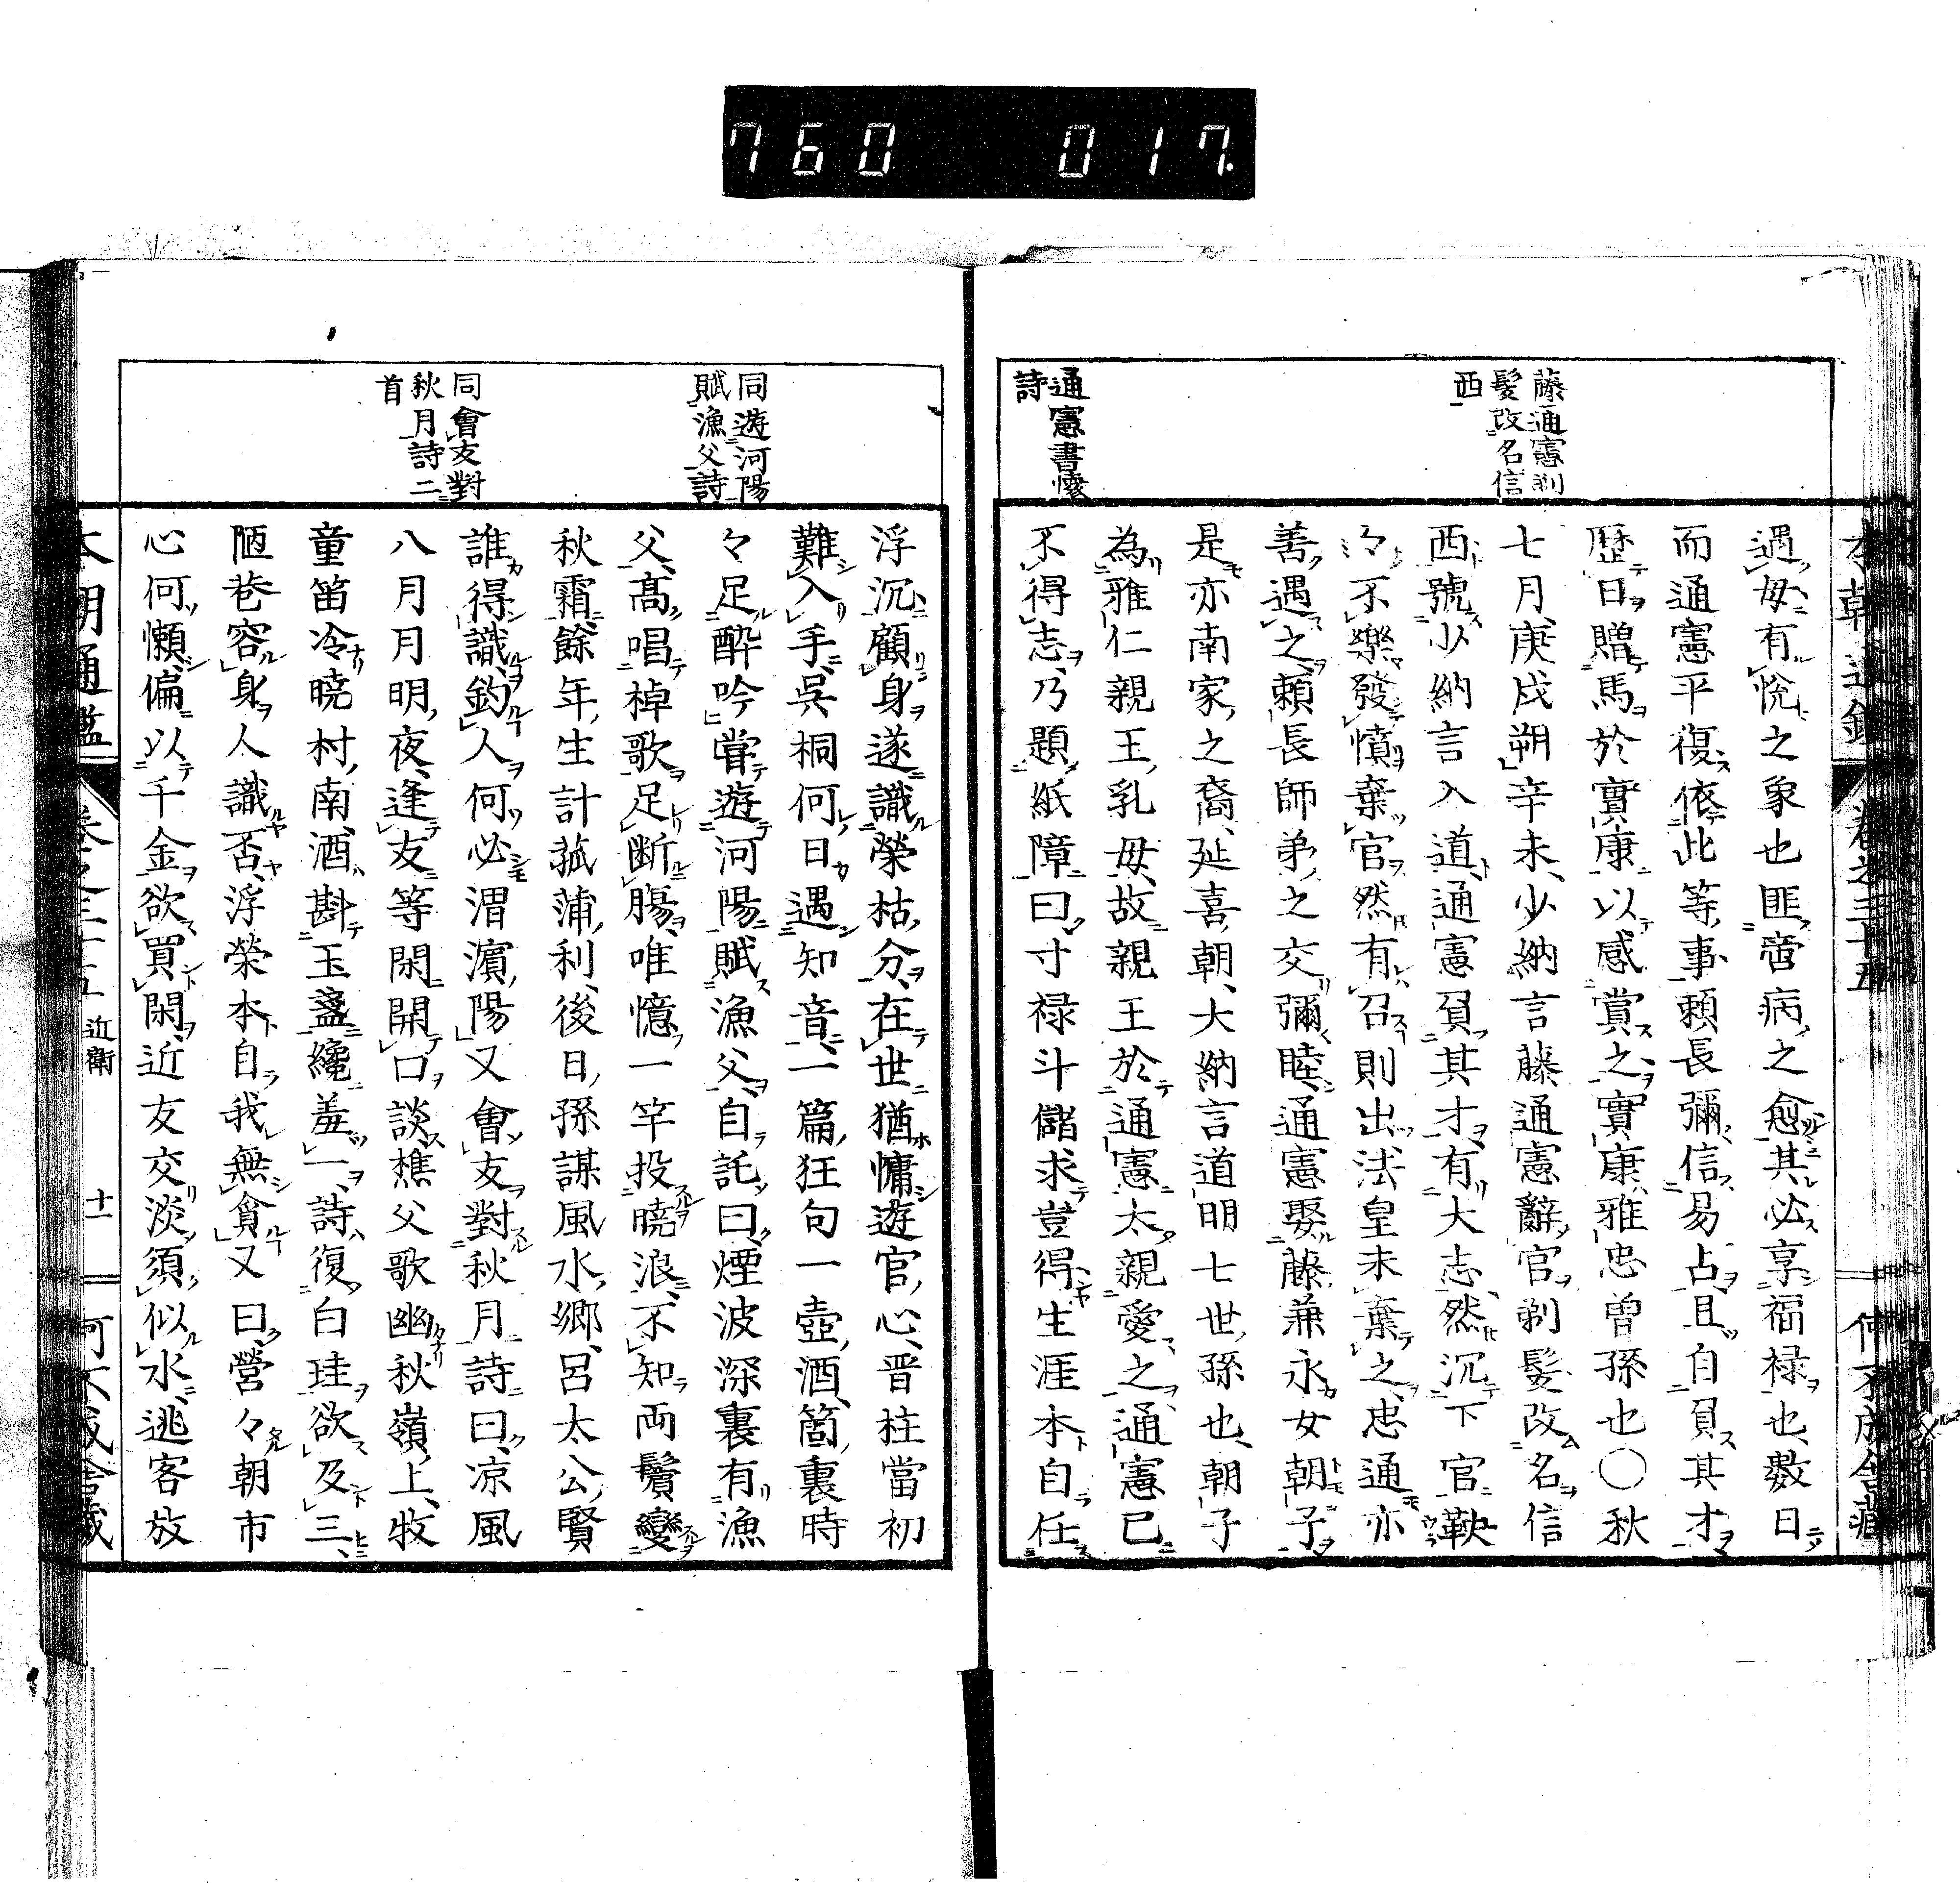 760 017
藤通憲剃
髮改名信
西
通憲書懷
詩
遇毋有悅之象也匪啻病之愈其必享福禄也數日
而通憲平復依此等事頼長彌信易占且自負其才
歷日贈馬於實康以感賞之實康雅忠曽孫也〇秋
七月庚戌朔辛未少納言藤通憲辭官剃髮改名信
西號少納言入道通憲負其才有大志然沉下官鞅
々不樂發憤棄官然有召則出法皇未棄之忠通亦
善遇之頼長師弟之交彌睦通憲娶藤兼永女朝子
是亦南家之裔延喜朝大納言道明七世孫也朝子
為雅仁親王乳母故親王於通憲太親愛之通憲已
不得志乃題紙障曰寸禄斗儲求豈得生涯本自任
同遊河陽
賦漁父詩
同會友對
秋月詩二
首
浮沉顧身遂識榮枯分在世猶慵遊官心晋柱當初
難入手呉桐何日遇知音一篇狂句一壺酒箇裏時
々足酔吟嘗遊河陽賦漁父自託曰煙波深裏有漁
父高唱棹歌足断腸唯憶一竿投曉浪不知両鬢變
秋霜餘年生計菰蒲利後日孫謀風水郷呂太公賢
誰得識釣人何必渭濵陽又會友對秋月詩曰凉風
八月月明夜逢友等閑開口談樵父歌幽秋嶺上牧
童笛冷曉村南酒斟玉盞纔羞一詩復白珪欲及三
陋巷容身人識否浮榮本自我無貪又曰營々朝市
心何懶偏以千金欲買閑近友交淡須似水逃客放
本朝通鑑 卷之三十五 近衛 十一